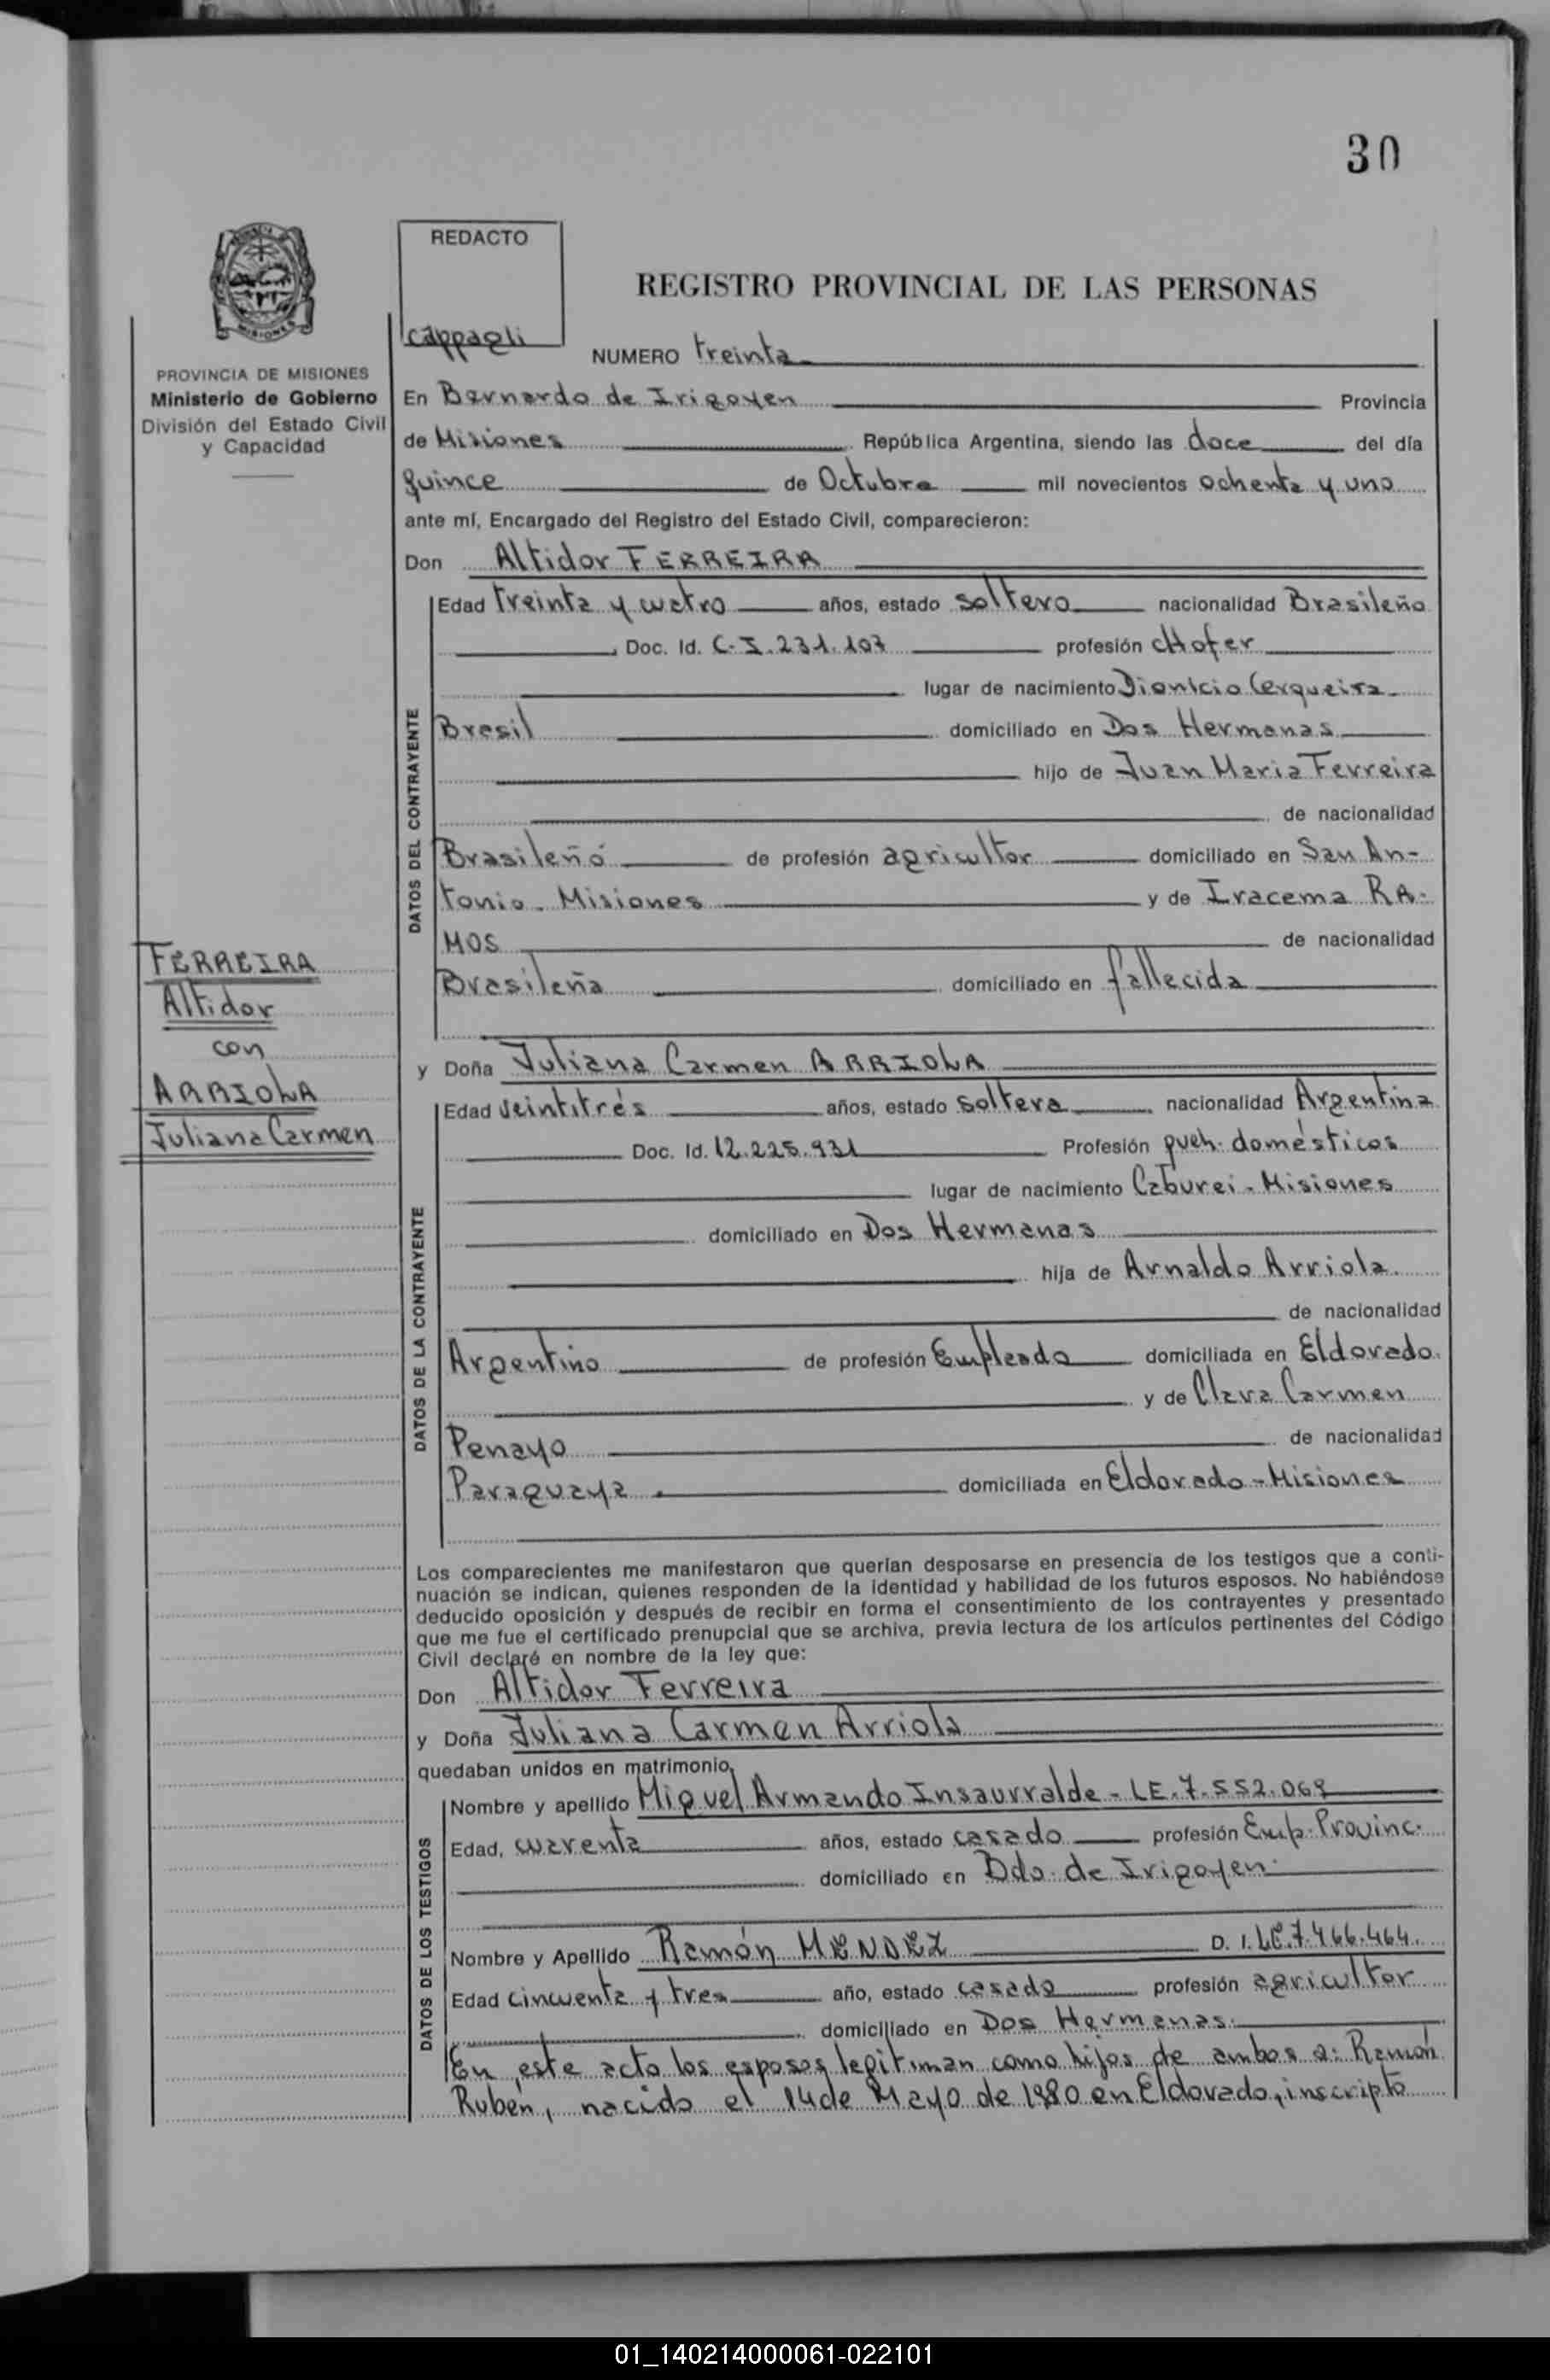 30
REDACTO
Cappagli
REGISTRO PROVINCIAL DE LAS PERSONAS
MISIONES
PROVINCIA DE MISIONES
Ministerio de Gobierno
División del Estado Civil
y Capacidad
NUMERO treinta
En Bernardo de Irigoyen Provincia
de Misiones República Argentina, siendo las doce del día
quince de Octubre mil novecientos ochenta y uno
ante mí, Encargado del Registro del Estado Civil, comparecieron:
Don Altidor FERREIRA
DATOS DEL CONTRAYENTE
Edad treinta y cuatro años, estado soltero nacionalidad Brasileño
Doc. Id. C.I. 231.107 profesión cHofer
lugar de nacimiento Dionicio Cerqueira
Brasil domiciliado en Dos Hermanas
hijo de Juan Maria Ferreira
de nacionalidad
Brasileño de profesión agricultor domiciliado en San An-
tonio - Misiones y de Iracema RA-
MOS de nacionalidad
Brasileña domiciliado en fallecida
FERREIRA
Altidor
con
ARRIOLA
Juliana Carmen
y Doña Juliana Carmen ARRIOLA
DATOS DE LA CONTRAYENTE
Edad veintitrés años, estado soltera nacionalidad Argentina
Doc. Id. 12.225.931 Profesión queh. domésticos
lugar de nacimiento Caburei - Misiones
domiciliado en Dos Hermanas
hija de Arnaldo Arriola
de nacionalidad
Argentino de profesión Empleado domiciliada en Eldorado.
y de Clara Carmen
Penayo de nacionalidad
Paraguaya domiciliada en Eldorado - Misiones
Los comparecientes me manifestaron que querían desposarse en presencia de los testigos que a conti-
nuación se indican, quienes responden de la identidad y habilidad de los futuros esposos. No habiéndose
deducido oposición y después de recibir en forma el consentimiento de los contrayentes y presentado
que me fue el certificado prenupcial que se archiva, previa lectura de los artículos pertinentes del Código
Civil declaré en nombre de la ley que:
Don Altidor Ferreira
y Doña Juliana Carmen Arriola
quedaban unidos en matrimonio,
DATOS DE LOS TESTIGOS
Nombre y apellido Miguel Armando Insaurralde - LE. 7.552.069
Edad, cuarenta años, estado casado profesión Emp. Provinc.
domiciliado en Bdo. de Irigoyen
Nombre y Apellido Ramón MENDEZ D. I. LE. 7.466.464.
Edad cincuenta y tres año, estado casado profesión agricultor
domiciliado en Dos Hermanas.
En este acto los esposos legitiman como hijos de ambos a: Ramón
Rubén, nacido el 14 de Mayo de 1980 en Eldorado, inscripto
01_140214000061-022101